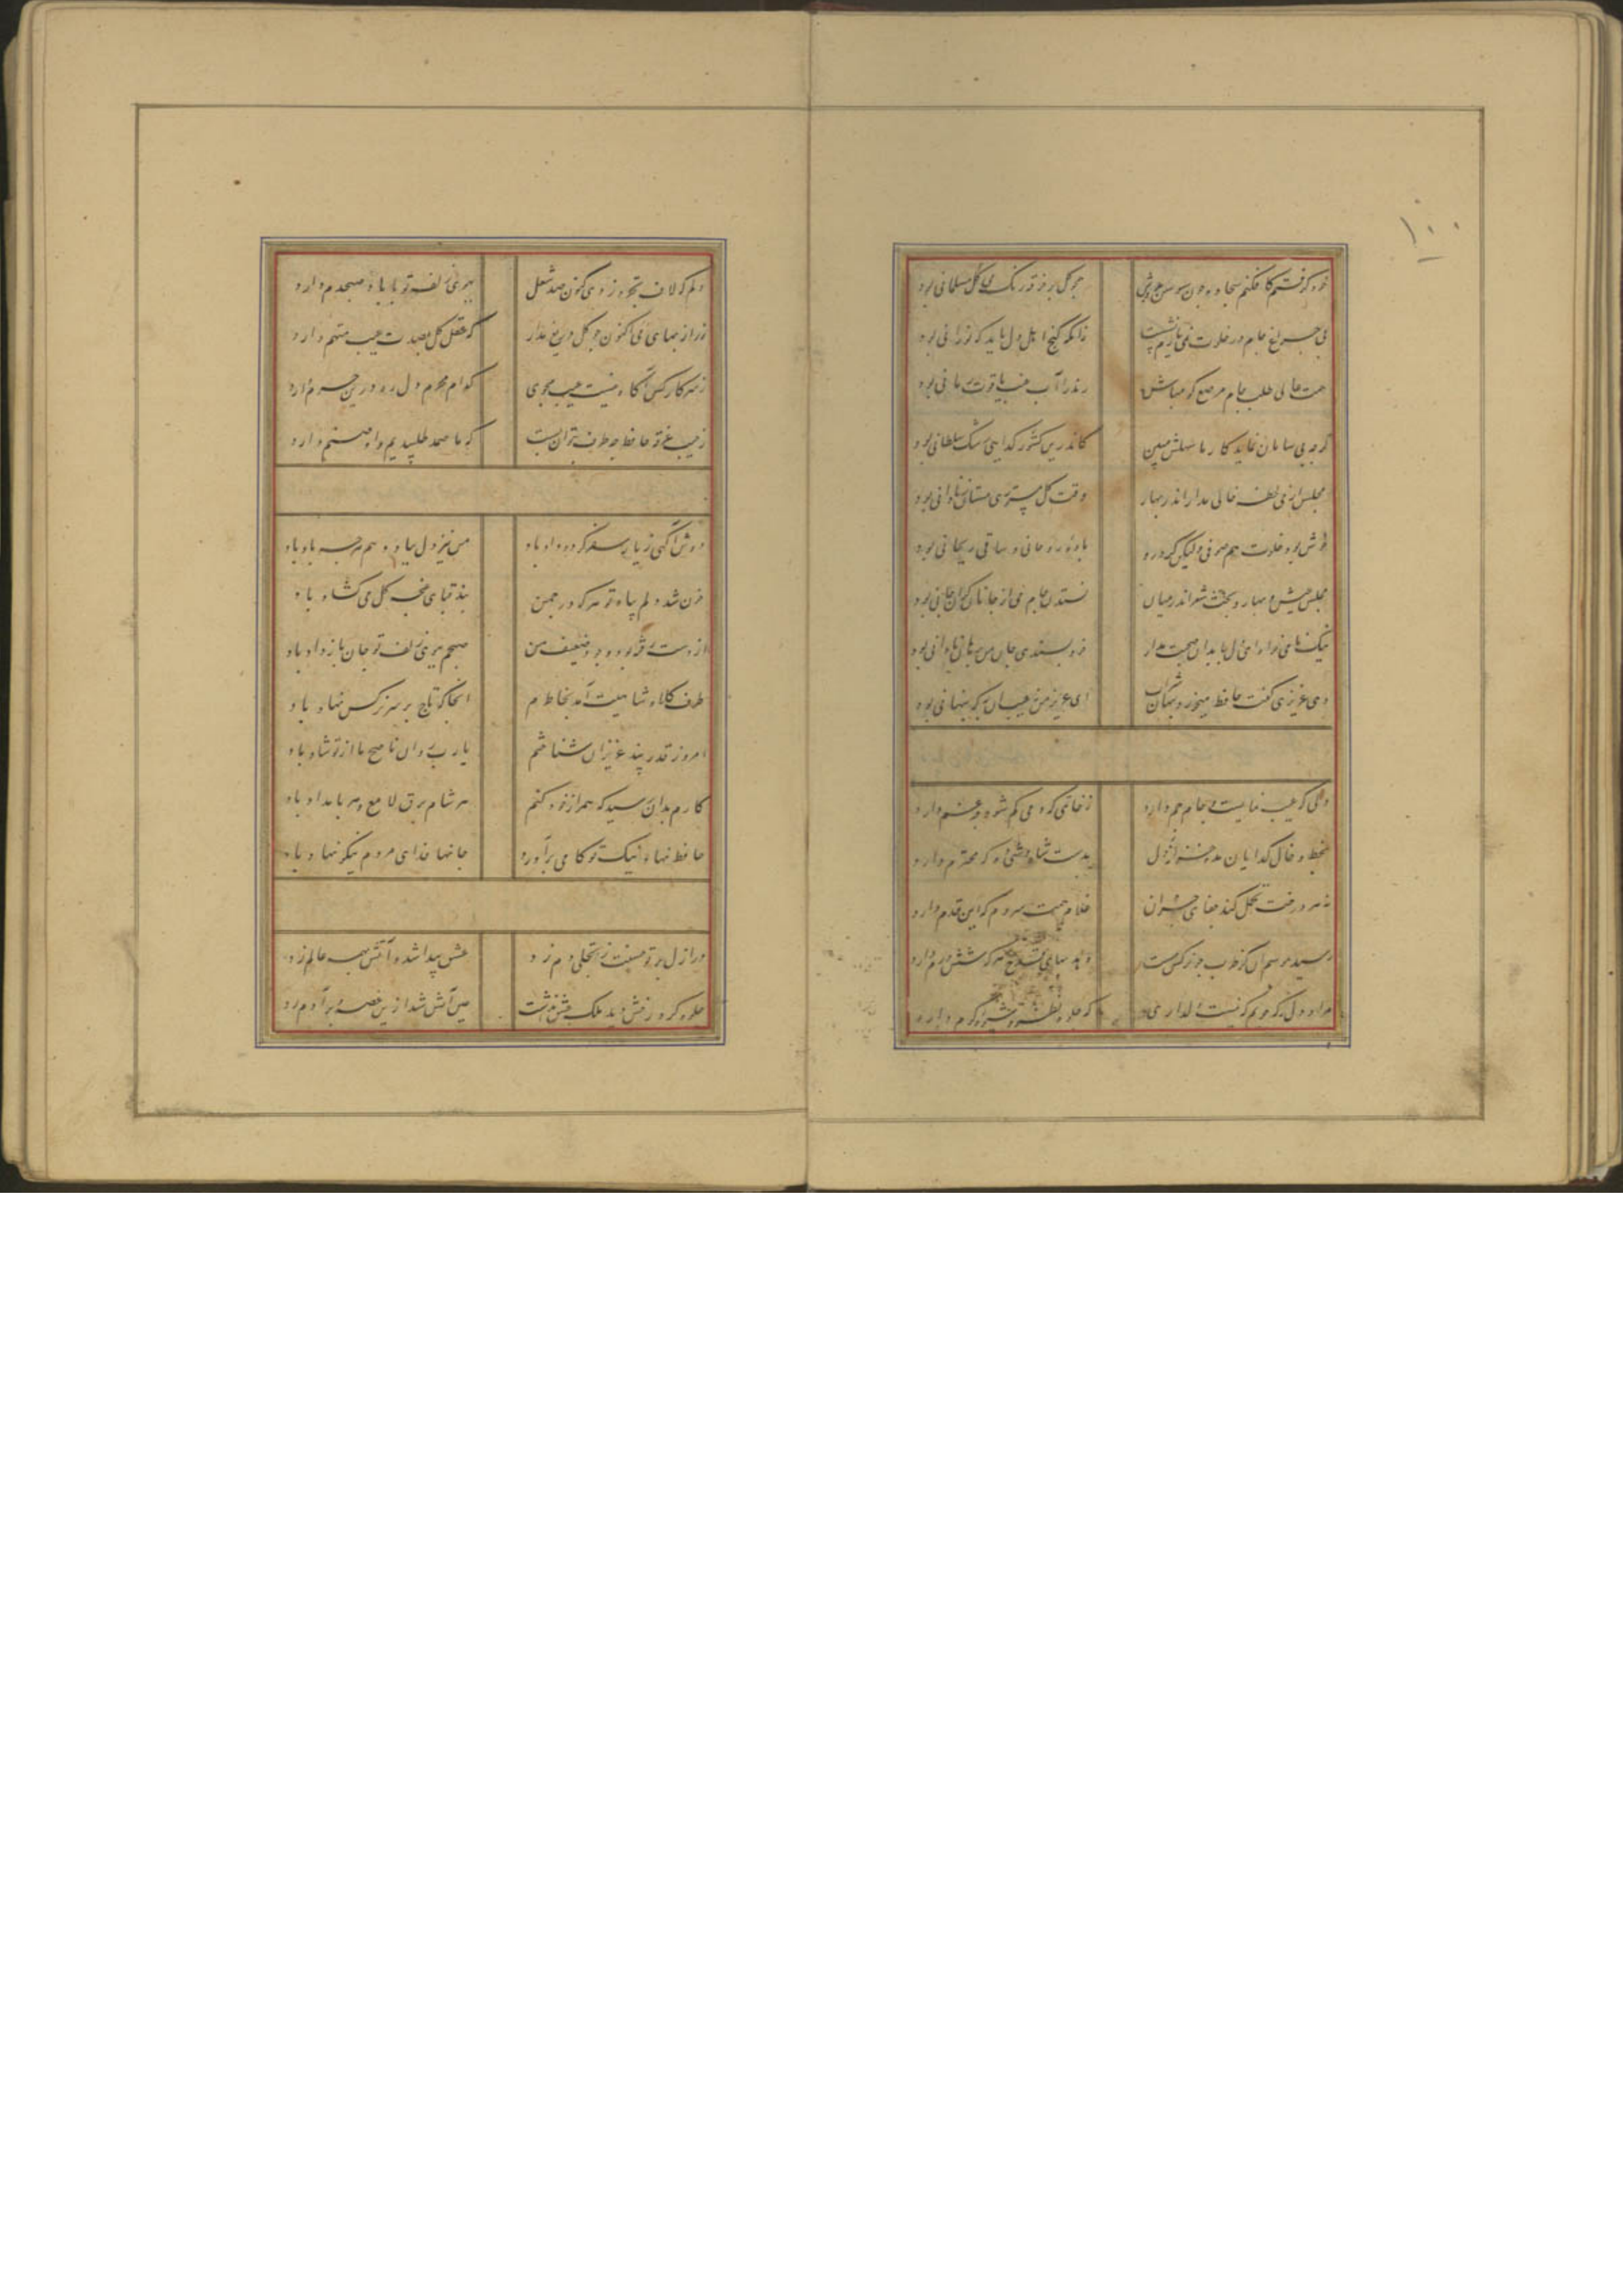 ۱۰۰
خود گرفتم کافکنم سجاده چون سوسن بدوش همچو گل بر خرقه رنگ می مسلمانی بود
بی چراغ جام در خلوت نمی یارم نشست زانکه کنج اهل دل باید که نورانی بود
همت عالی طلب جام مرصع گو مباش رند را آب عنب یاقوت رمانی بود
گرچه بی سامان نماید کار ما سهلش مبین کاندرین کشور گدایی رشک سلطانی بود
مجلس
وقت گل مستوری مستان ز نادانی بود
خوش بود خلوت هم صوفی ولیکن گر درو باده روحانی و ساقی ریحانی بود
مجلس عیش و بهار و بحث شعر اندر میان نستدن جام می از جانان گران جانی بود
نیک نامی خواهی ای دل با بدان صحبت مدار خود پسندی جان من برهان نادانی بود
دی عزیزی گفت حافظ میخورد پنهان شراب ای عزیز من عیب آن به که پنهانی بود
دلی که غیب نمایست و جام جم دارد ز خاتمی که دمی گم شود چه غم دارد
بخط و خال گدایان مده خزانه دل بدست شاه وشی ده که محترم دارد
نه هر درخت تحمل کند جفای خزان غلام همت سروم که این قدم دارد
رسید موسم آن کز طرب چو نرگس مست نهد بپای قدح هر که شش درم دارد
مراد دل ز که جویم که نیست دلداری که جلوه نظر و شیوه کرم دارد
دلم که لاف تجرد زدی کنون صد شغل ببوی زلف تو با باد صبحدم دارد
زر از بهای می اکنون چو گل دریغ مدار که عقل کل بصدت عیب متهم دارد
ز سر کار کس آگاه نیست عیب مجوی کدام محرم دل ره درین حرم دارد
ز جیب خرقه حافظ چه طرف بتوان بست که ما صمد طلبیدیم و او صنم دارد
دوش آگهی ز یار سفر کرده داد باد من نیز دل بباد دهم هرچه باد باد
خون شد دلم بیاد تو هر گه که در چمن بند قبای غنچه گل می گشاد باد
از دست رفته بود وجود ضعیف من صبحم ببوی زلف تو جان باز داد باد
طرف کلاه شاهیت آمد بخاطرم آنجا که تاج بر سر نرگس نهاد باد
امروز قدر پند عزیزان شناختم یارب روان ناصح ما از تو شاد باد
کارم بدان رسید که همراز خود کنم هر شام برق لامع و هر بامداد باد
حافظ نهاد نیک تو کامی برآورد جانها فدای مردم نیکو نهاد باد
در ازل پرتو حسنت ز تجلی دم زد عشق پیدا شد و آتش بهمه عالم زد
جلوه کرد رخش دید ملک عشق نداشت عین آتش شد ازین غصه و بر آدم زد